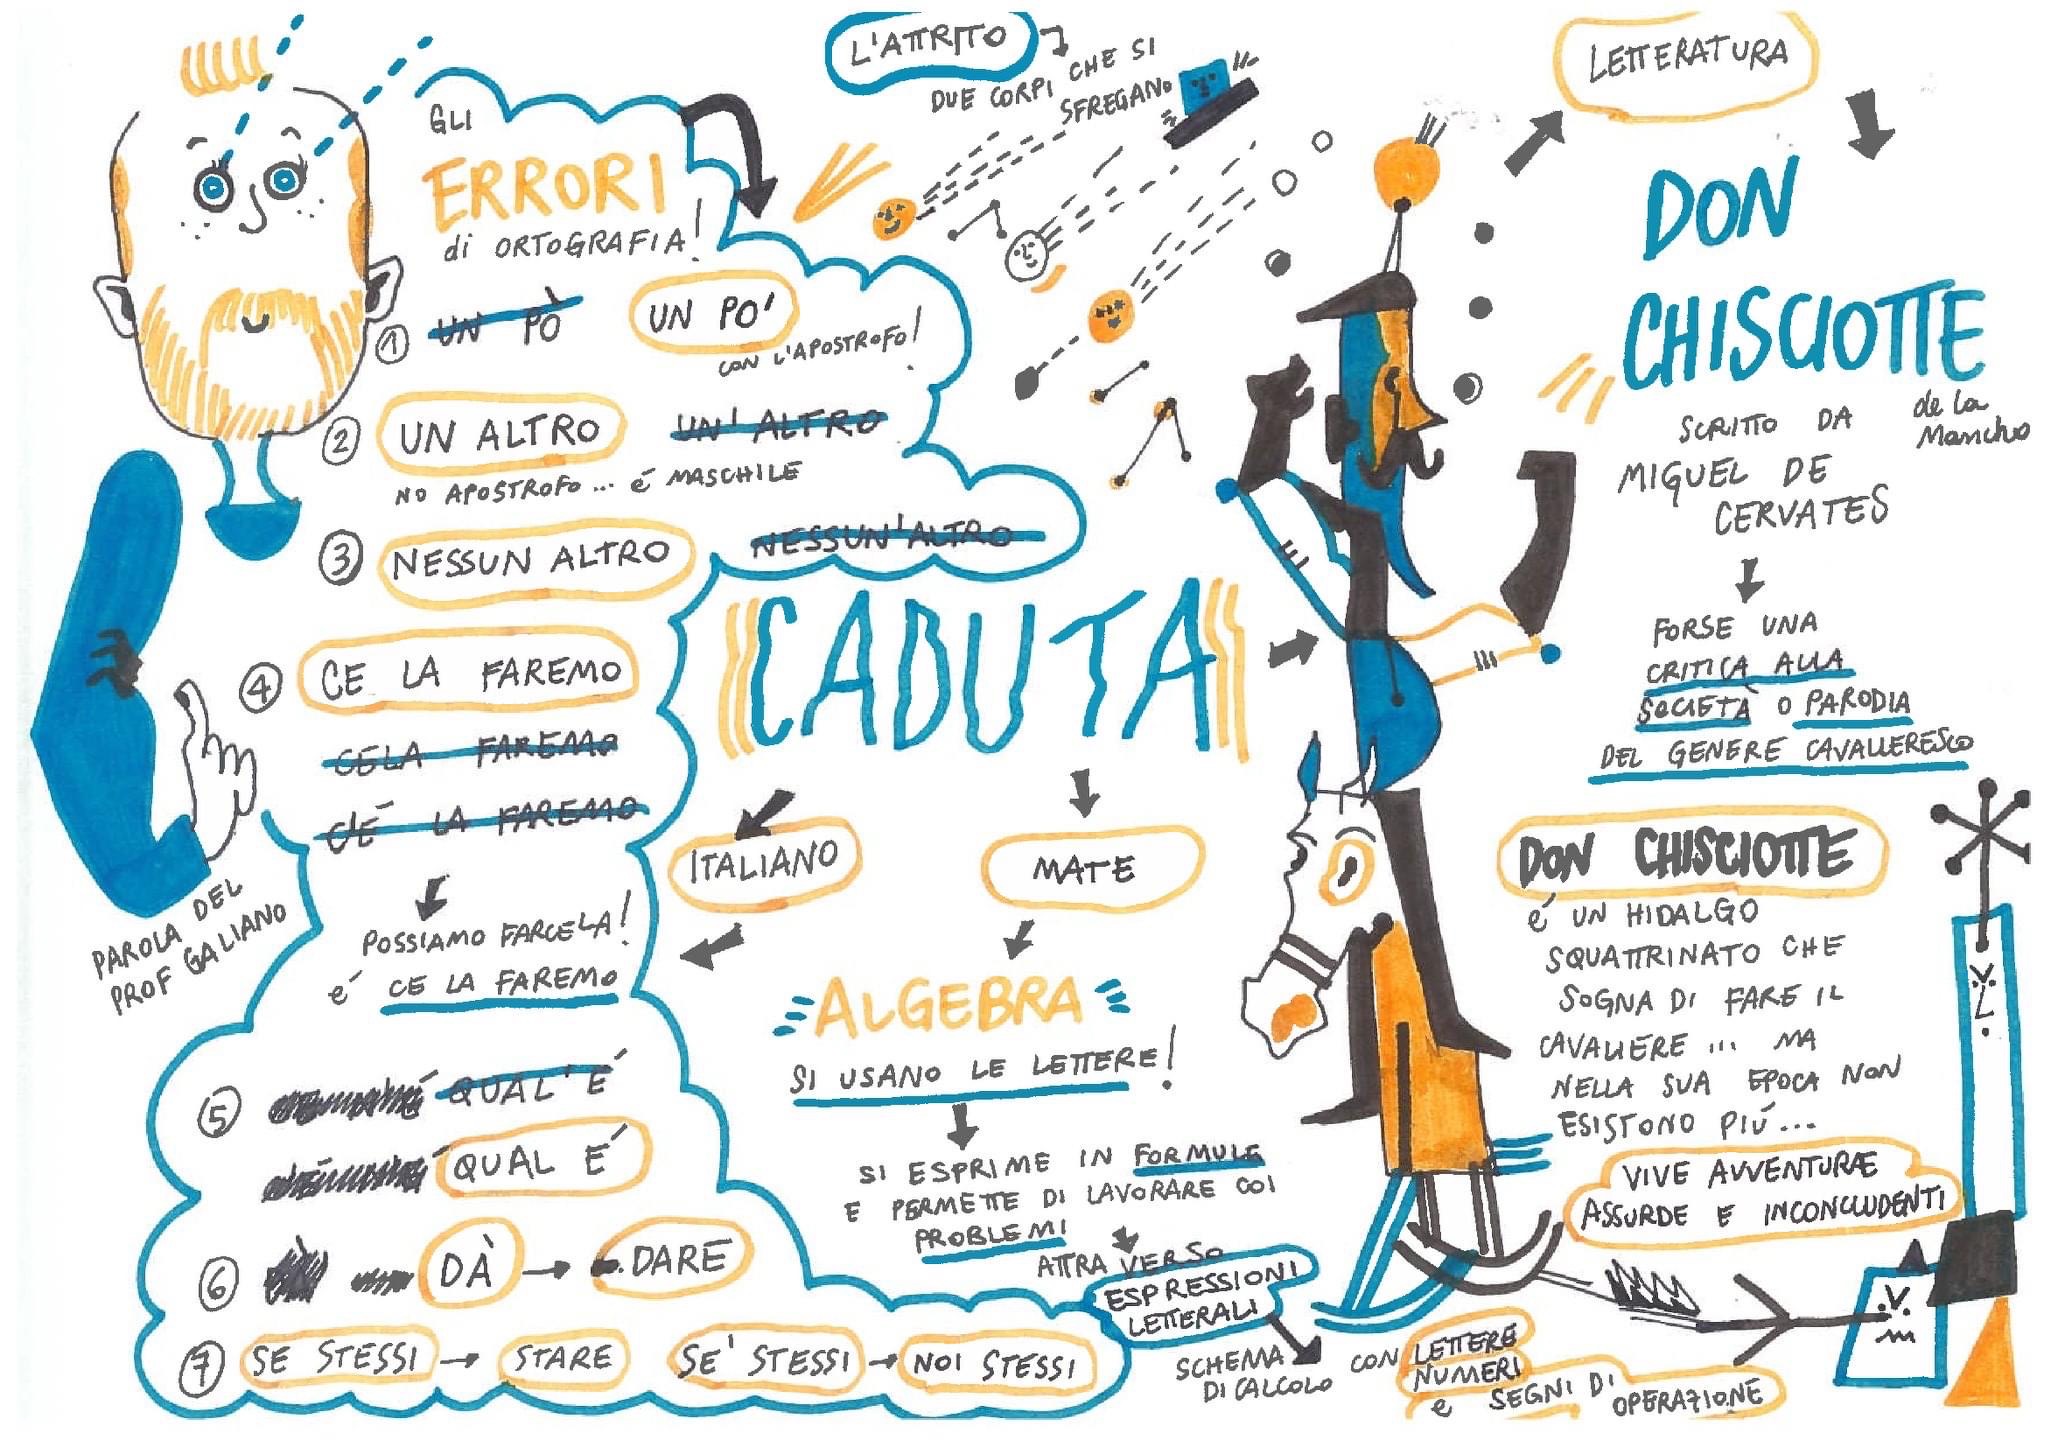 GLI
ERRORI
di ORTOGRAFIA!
① UN PÒ UN PO'
CON L'APOSTROFO!
② UN ALTRO UN' ALTRO
NO APOSTROFO... é MASCHILE
③ NESSUN ALTRO NESSUN'ALTRO
④ CE LA FAREMO
CELA FAREMO
C'É LA FAREMO
POSSIAMO FARCELA!
é CE LA FAREMO
⑤ QUAL' É
QUAL É
⑥ DÀ → DARE
⑦ SE STESSI → STARE SE' STESSI → NOI STESSI
PAROLA DEL
PROF GALIANO
L'ATTRITO
DUE CORPI CHE SI
SFREGANO
CADUTA
ITALIANO
MATE
ALGEBRA
SI USANO LE LETTERE!
SI ESPRIME IN FORMULE
E PERMETTE DI LAVORARE COI
PROBLEMI
ATTRAVERSO
ESPRESSIONI
LETTERALI
SCHEMA
DI CALCOLO
CON LETTERE
NUMERI
e SEGNI DI
OPERAZIONE
LETTERATURA
DON
CHISCIOTTE
de la
Mancha
SCRITTO DA
MIGUEL DE
CERVATES
FORSE UNA
CRITICA ALLA
SOCIETÀ O PARODIA
DEL GENERE CAVALLERESCO
DON CHISCIOTTE
é UN HIDALGO
SQUATTRINATO CHE
SOGNA DI FARE IL
CAVALIERE ... MA
NELLA SUA EPOCA NON
ESISTONO PIÚ...
VIVE AVVENTURE
ASSURDE E INCONCLUDENTI